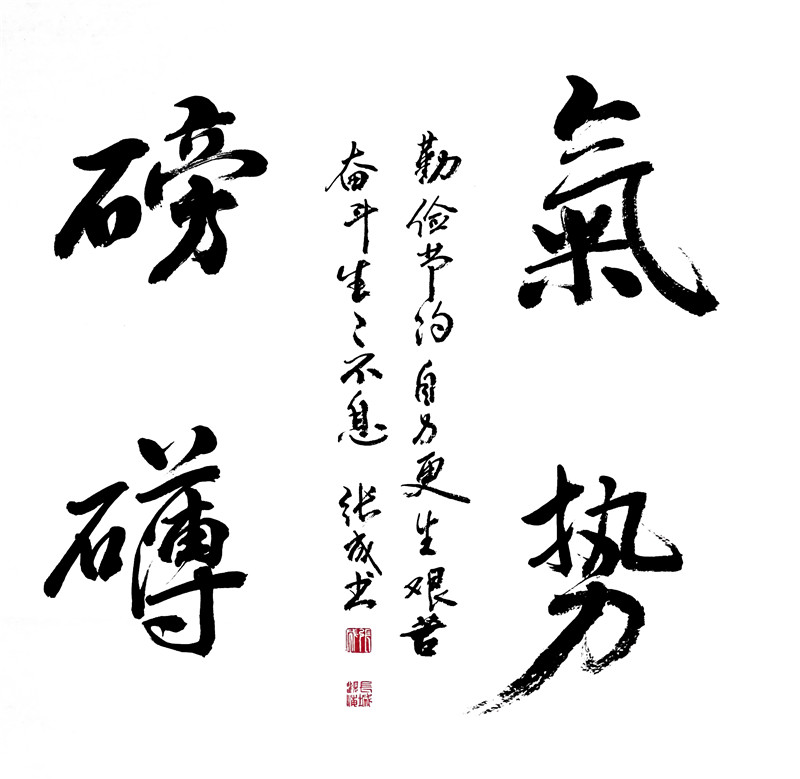 氣势
勤俭节约自力更生艰苦
奋斗生〻不息 张成书
磅礴